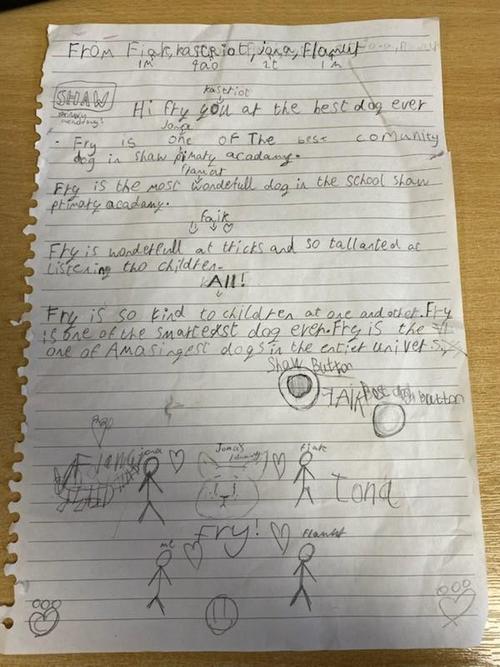 From Fiak, kastriot, jona, Flamur
1m 9ao 2c 1m
SHAW
kastriot
Hi fry you at the best dog ever
Jona
. Fry is one of The best comunity
dog in shaw pimaty acadamy.
flamur
Fry is the most wondefull dog in the school shaw
primaty acadamy.
Faik
Fry is wonderfull at tricks and so tallanted at
Listening tho children.
All!
Fry is so kind to children at one and other. Fry
is one of the smartexst dog ever. Fry is the
one of Amasingest dogs in the entier univer
Shaw Button
FAIK
button
jona
Jona's
Fiak
Jona
Fry!
me
Flamur